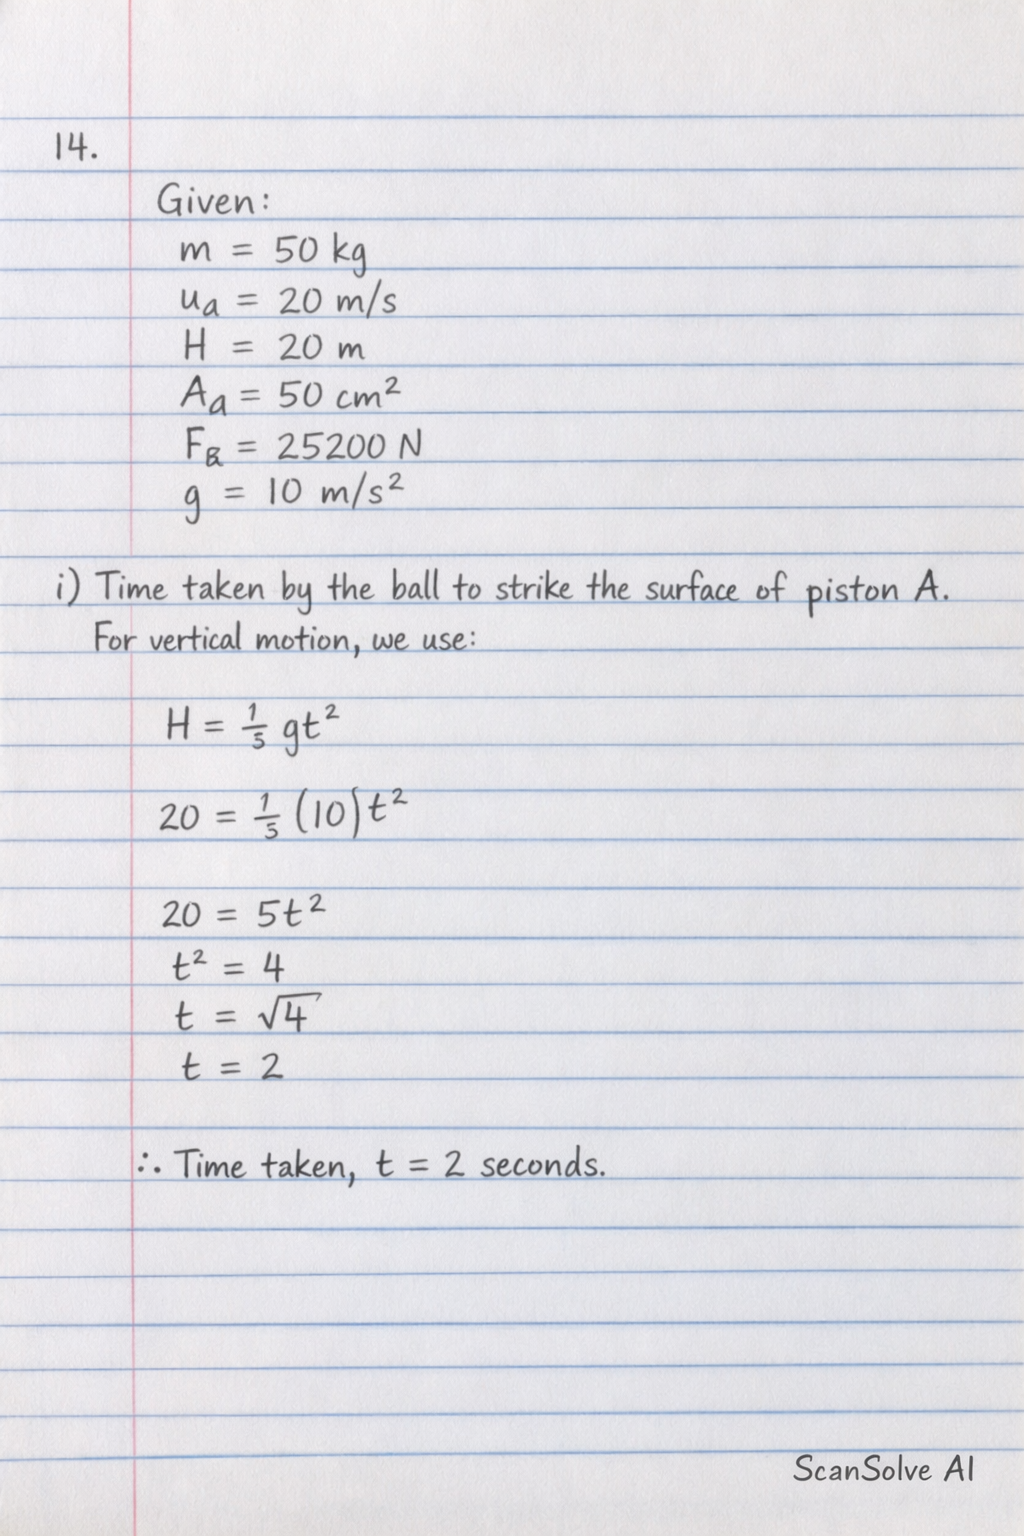 14.
Given:
m = 50 kg
uₐ = 20 m/s
H = 20 m
Aₐ = 50 cm²
F_B = 25200 N
g = 10 m/s²
i) Time taken by the ball to strike the surface of piston A.
For vertical motion, we use:
H = 1/5 gt²
20 = 1/5 (10)t²
20 = 5t²
t² = 4
t = √4
t = 2
∴ Time taken, t = 2 seconds.
ScanSolve AI